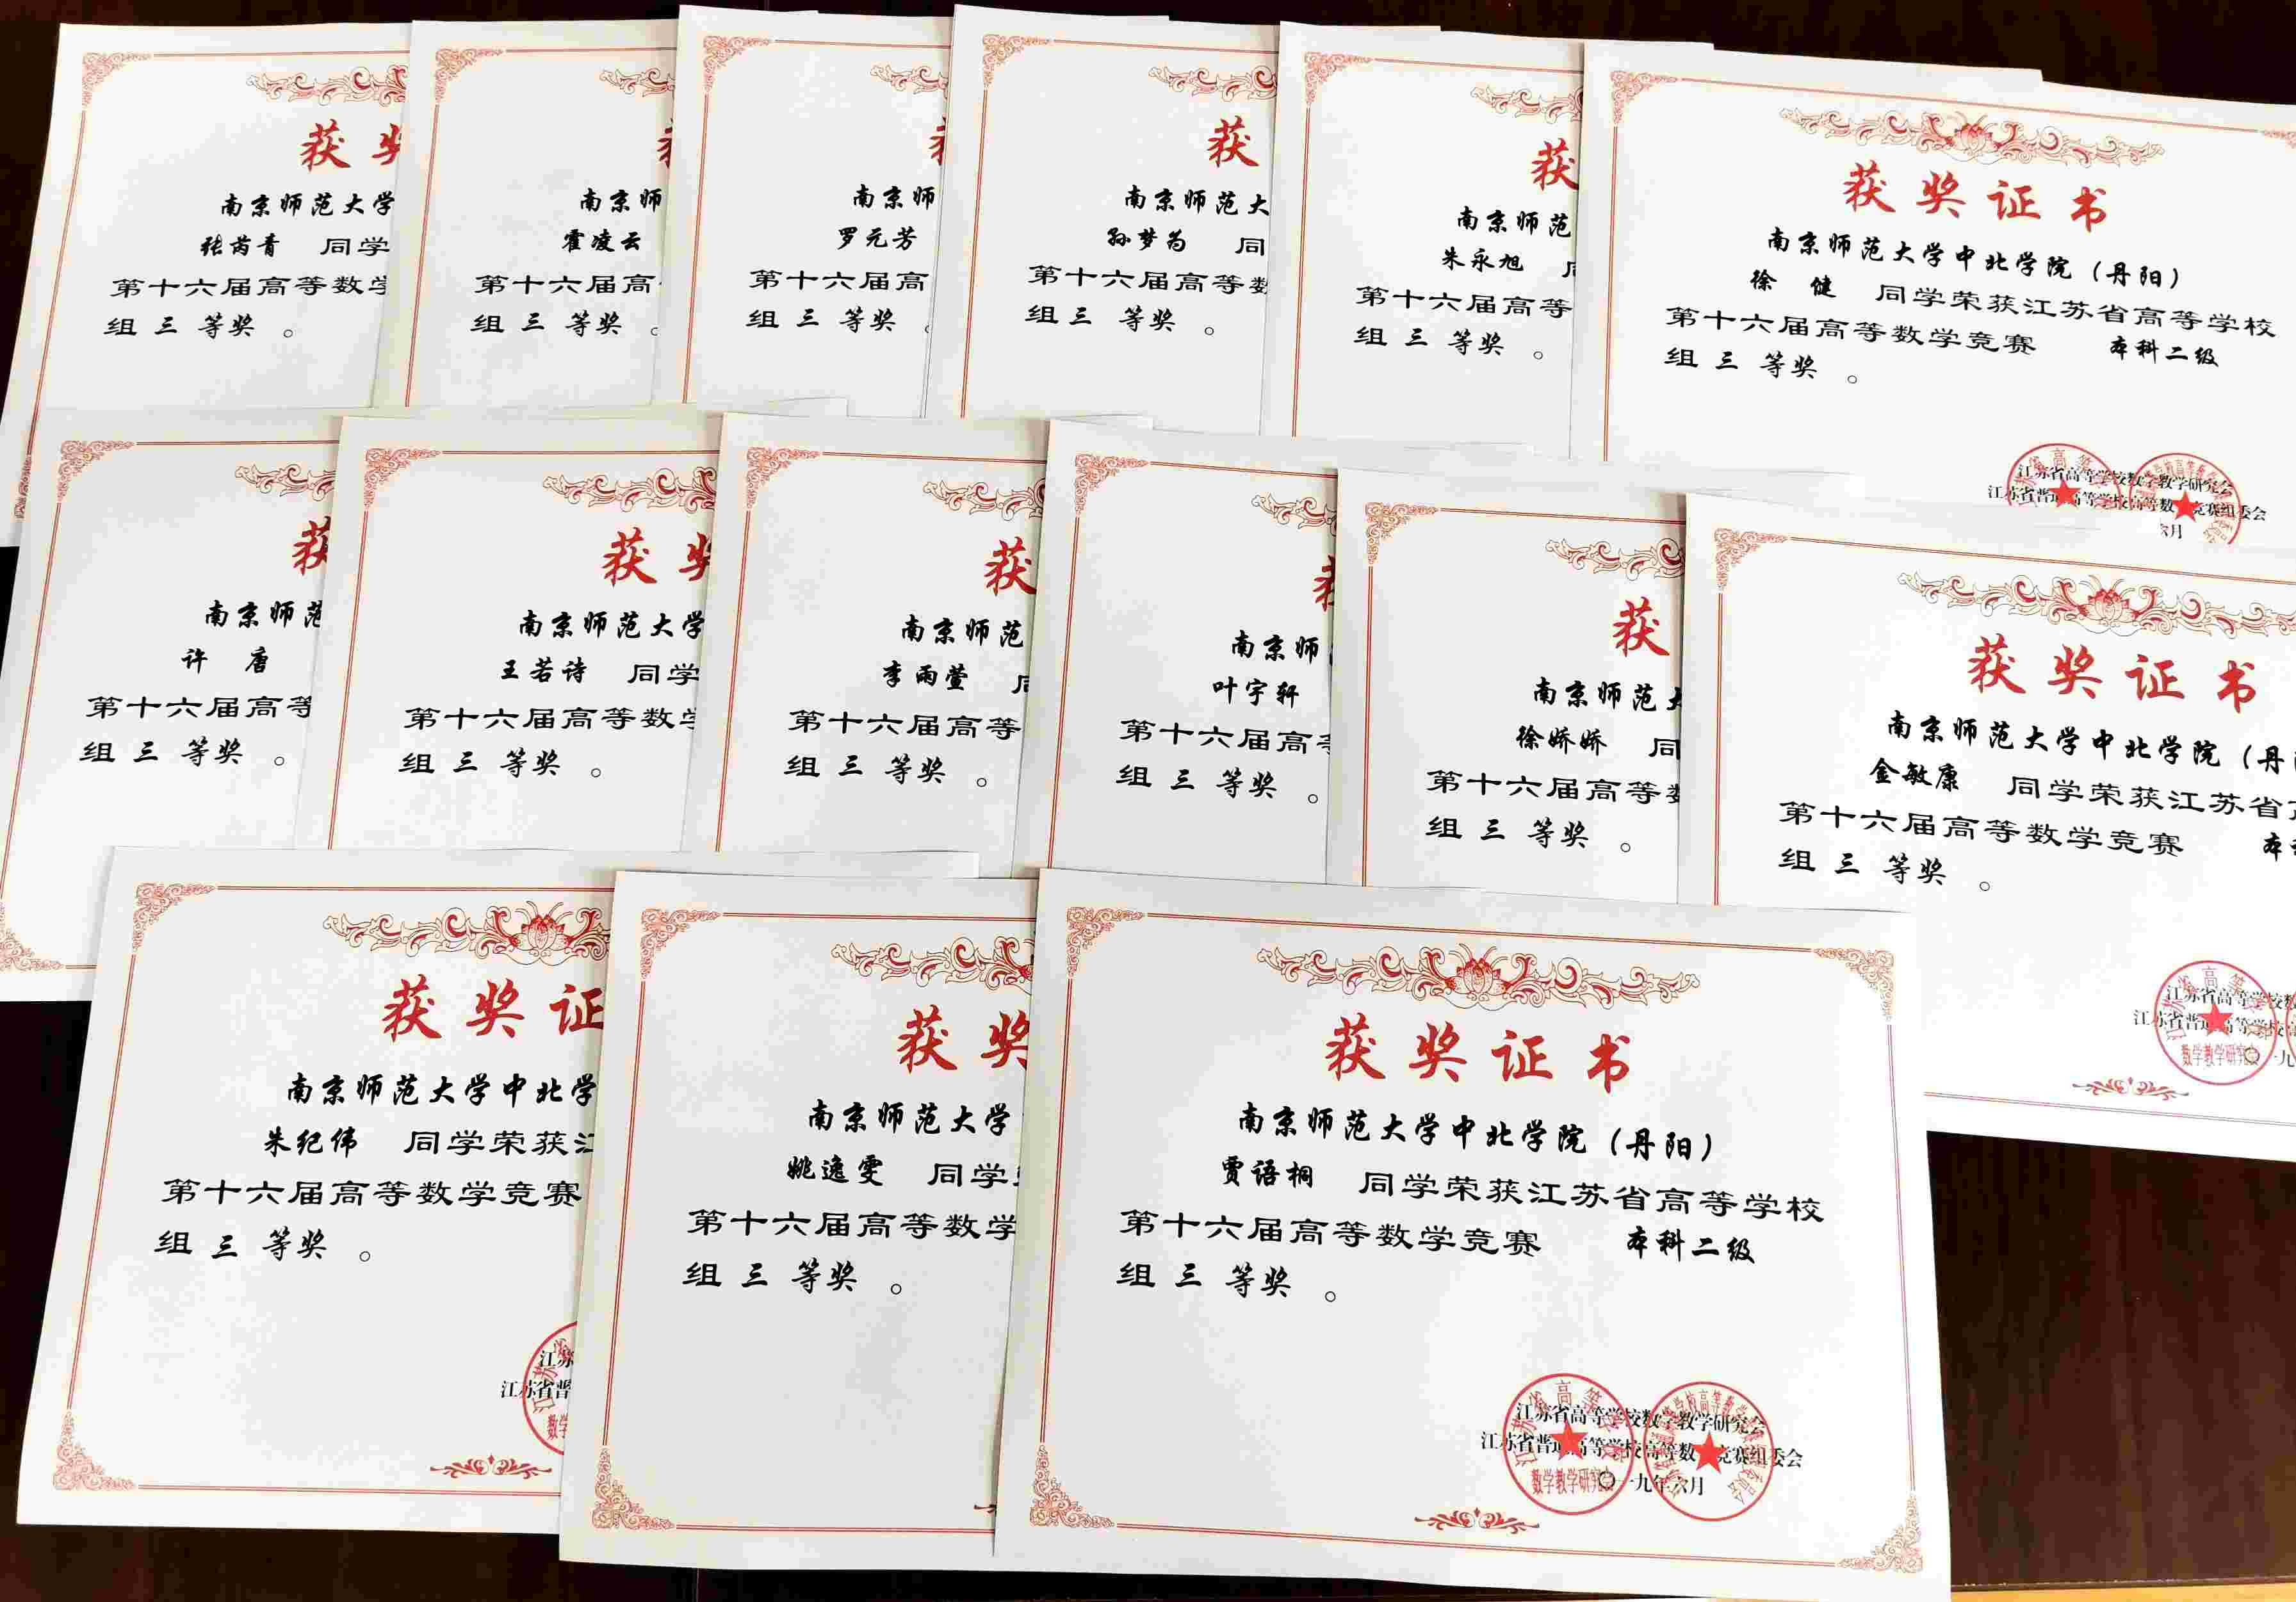 获奖
南京师范大学
张芮青 同学
第十六届高等数学
组 三 等奖 。
南京师
霍凌云
第十六届高
组 三 等奖 。
南京师
罗元芳
第十六届高
组 三 等奖
获
南京师范大
孙梦为 同
第十六届高等数
组 三 等奖 。
获
南京师范
朱永旭
第十六届高等
组 三 等奖 。
获奖证书
南京师范大学中北学院（丹阳）
徐 健 同学荣获江苏省高等学校
第十六届高等数学竞赛 本科二级
组 三 等奖 。
江苏省高等学校数学教学研究会
江苏省普通高等学校高等数学竞赛组委会
六月
获
南京师范
许 唐
第十六届高等
组 三 等奖 。
获奖
南京师范大学
王若诗 同学
第十六届高等数学
组 三 等奖 。
获
南京师范
李雨萱 同
第十六届高等
组 三 等奖 。
南京师
叶宇轩
第十六届高等
组 三 等奖 。
获
南京师范大
徐娇娇 同
第十六届高等数
组 三 等奖 。
获奖证书
南京师范大学中北学院（丹
金敏康 同学荣获江苏省高
第十六届高等数学竞赛 本科
组 三 等奖 。
江苏省高等学校数
江苏省普通高等学校高
数学教学研究会
一九
获奖证
南京师范大学中北学
朱纪伟 同学荣获江
第十六届高等数学竞赛
组 三 等奖 。
江苏
江苏省普
数学
获奖
南京师范大学
姚逸雯 同学
第十六届高等数学
组 三 等奖 。
获奖证书
南京师范大学中北学院（丹阳）
贾语桐 同学荣获江苏省高等学校
第十六届高等数学竞赛 本科二级
组 三 等奖 。
江苏省高等学校数学教学研究会
江苏省普通高等学校高等数学竞赛组委会
数学教学研究会
〇一九年六月